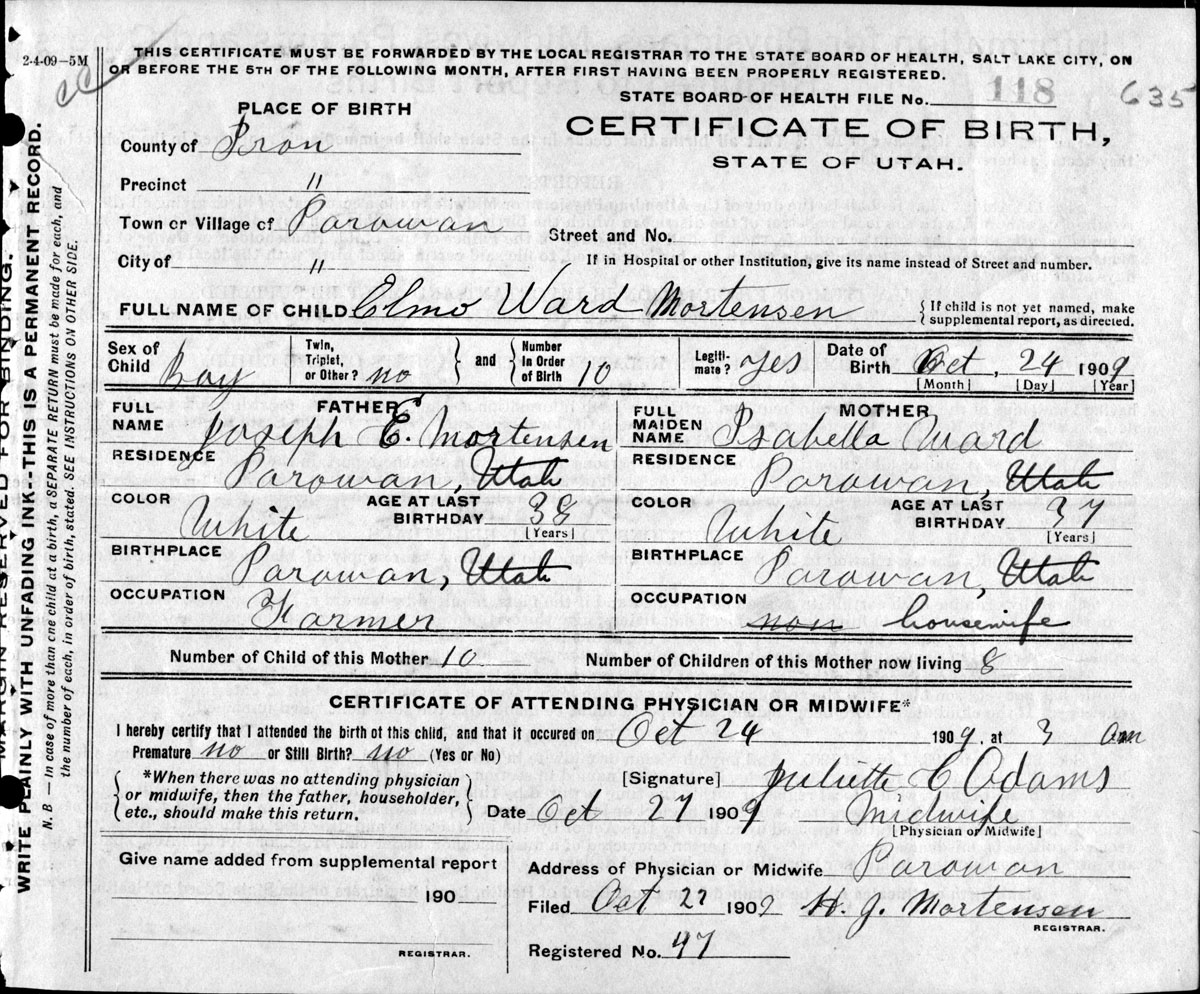 2-4-09-5M
THIS CERTIFICATE MUST BE FORWARDED BY THE LOCAL REGISTRAR TO THE STATE BOARD OF HEALTH, SALT LAKE CITY, ON
OR BEFORE THE 5TH OF THE FOLLOWING MONTH, AFTER FIRST HAVING BEEN PROPERLY REGISTERED.
STATE BOARD OF HEALTH FILE No. 118 635
PLACE OF BIRTH
CERTIFICATE OF BIRTH,
STATE OF UTAH.
County of Iron
Precinct "
Town or Village of Parowan
Street and No.
City of "
If in Hospital or other Institution, give its name instead of Street and number.
FULL NAME OF CHILD Elmo Ward Mortensen { If child is not yet named, make
supplemental report, as directed.
Sex of Child Boy Twin, Triplet, or Other? no } and { Number In Order of Birth 10 Legiti-mate? yes Date of Birth Oct, 24 1909
[Month] [Day] [Year]
FATHER MOTHER
FULL NAME Joseph E. Mortensen FULL MAIDEN NAME Isabella Ward
RESIDENCE Parowan, Utah RESIDENCE Parowan, Utah
COLOR White AGE AT LAST BIRTHDAY 38 [Years] COLOR White AGE AT LAST BIRTHDAY 37 [Years]
BIRTHPLACE Parowan, Utah BIRTHPLACE Parowan, Utah
OCCUPATION Farmer OCCUPATION non housewife
Number of Child of this Mother 10 Number of Children of this Mother now living 8
CERTIFICATE OF ATTENDING PHYSICIAN OR MIDWIFE*
I hereby certify that I attended the birth of this child, and that it occured on Oct 24 1909, at 3 am
Premature no or Still Birth? no (Yes or No)
{ *When there was no attending physician
or midwife, then the father, householder,
etc., should make this return. }
[Signature] Juliette C Adams
Date Oct 27 1909 Midwife
[Physician or Midwife]
Give name added from supplemental report
190
REGISTRAR.
Address of Physician or Midwife Parowan
Filed Oct 27 1909 H. J. Mortensen
REGISTRAR.
Registered No. 47
MARGIN RESERVED FOR BINDING.
WRITE PLAINLY WITH UNFADING INK-THIS IS A PERMANENT RECORD.
N. B — In case of more than one child at a birth, a SEPARATE RETURN must be made for each, and
the number of each, in order of birth, stated. SEE INSTRUCTIONS ON OTHER SIDE.